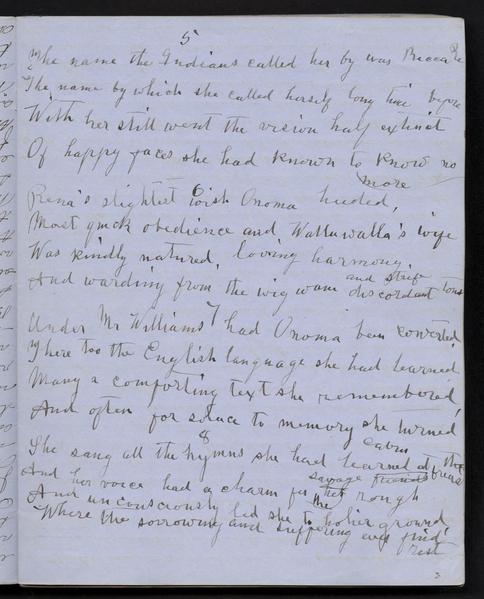 5
The name the Indians called her by was Becca
The name by which she called herself long time before
With her still went the vision half extinct
Of happy faces she had known to know no
more
6
Rena's slightest wish Onoma heeded,
Most quick obedience and Walluwalla's wife
Was kindly natured, loving harmony,
and strife
And warding from the wigwam discordant tones
7
Under Mr Williams had Onoma been converted,
Where too the English language she had learned
Many a comforting text she remembered,
And often for solace to memory she turned
8
She sang all the hymns she had learned at the
cabin
And her voice had a charm for the rough
savage friends
And unconsciously led she to holier ground,
Where the sorrowing and suffering ever find
rest
3